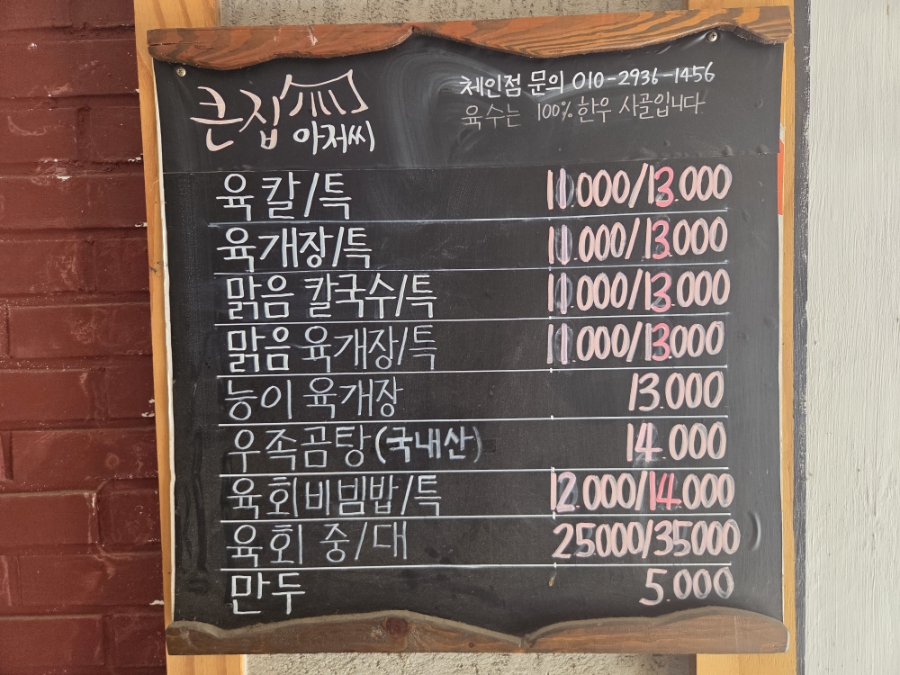 큰집 아저씨
체인점 문의 010-2936-1456
육수는 100% 한우 사골입니다
육칼/특 11.000/13.000
육개장/특 11.000/13.000
맑음 칼국수/특 11.000/13.000
맑음 육개장/특 11.000/13.000
능이 육개장 13.000
우족곰탕(국내산) 14.000
육회비빔밥/특 12.000/14.000
육회 중/대 25000/35000
만두 5.000